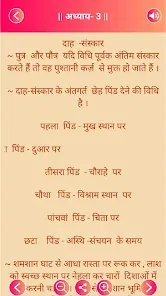 || अध्याय- 3 ||
दाह -संस्कार
~ पुत्र और पौत्र यदि विधि पूर्वक अंतिम संस्कार
करते हैं तो वह पुश्तानी कर्ज़ से मुक्त हो जाते हैं ।
~ दाह-संस्कार के अंतगर्त छेह पिंड देने की विधि
है ।
पहला पिंड - मुख स्थान पर
पिंड - दुआर पर
तीसरा पिंड - चौराहे पर
चौथा पिंड - विश्राम स्थान पर
पांचवां पिंड - चिता पर
छटा पिंड - अस्थि -संचयन के समय
~ शमशान घाट से आधा रास्ता पर रूक कर , लाश
को स्वच्छ स्थान पर नेहला कर चारों दिशाओं में